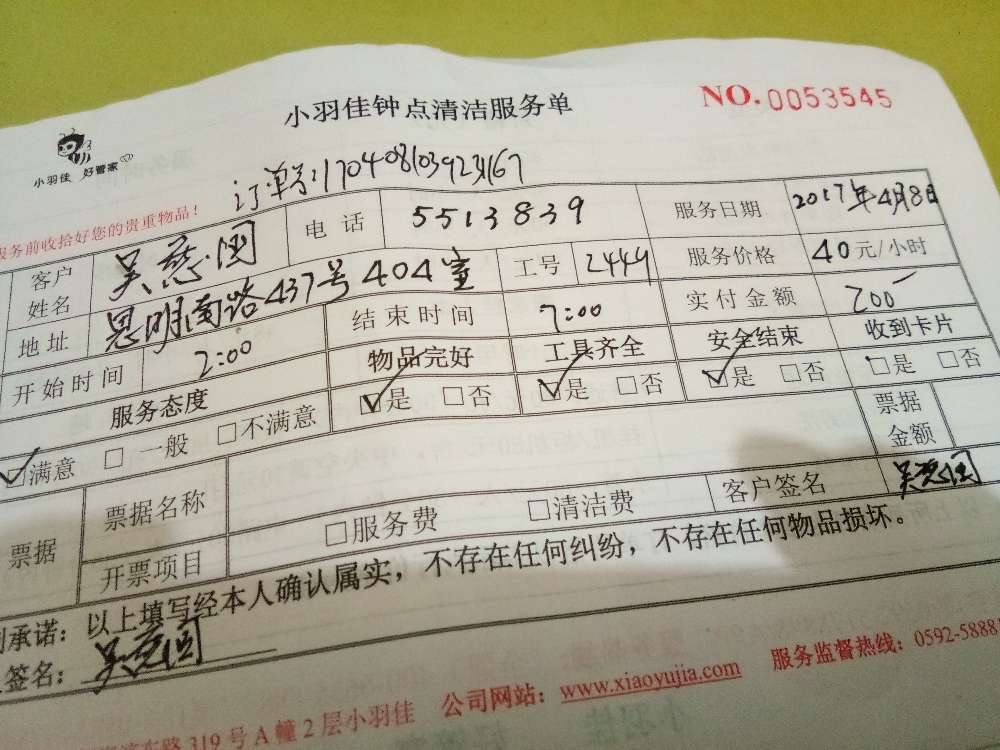 小羽佳钟点清洁服务单
NO.0053545
小羽佳 好管家
订单号:170408103923167
服务前收拾好您的贵重物品!
客户姓名 吴慈闵 电话 5513839 服务日期 2017年4月8日
地址 思明南路437号404室 工号 2449 服务价格 40元/小时
开始时间 2:00 结束时间 7:00 实付金额 200
服务态度 物品完好 工具齐全 安全结束 收到卡片
☑满意 □一般 □不满意 ☑是 □否 ☑是 □否 ☑是 □否 □是 □否
票据 票据名称 票据金额
开票项目 □服务费 □清洁费 客户签名
承诺:以上填写经本人确认属实,不存在任何纠纷,不存在任何物品损坏。
签名:
路319号A幢2层小羽佳 公司网站:www.xiaoyujia.com 服务监督热线:0592-5888